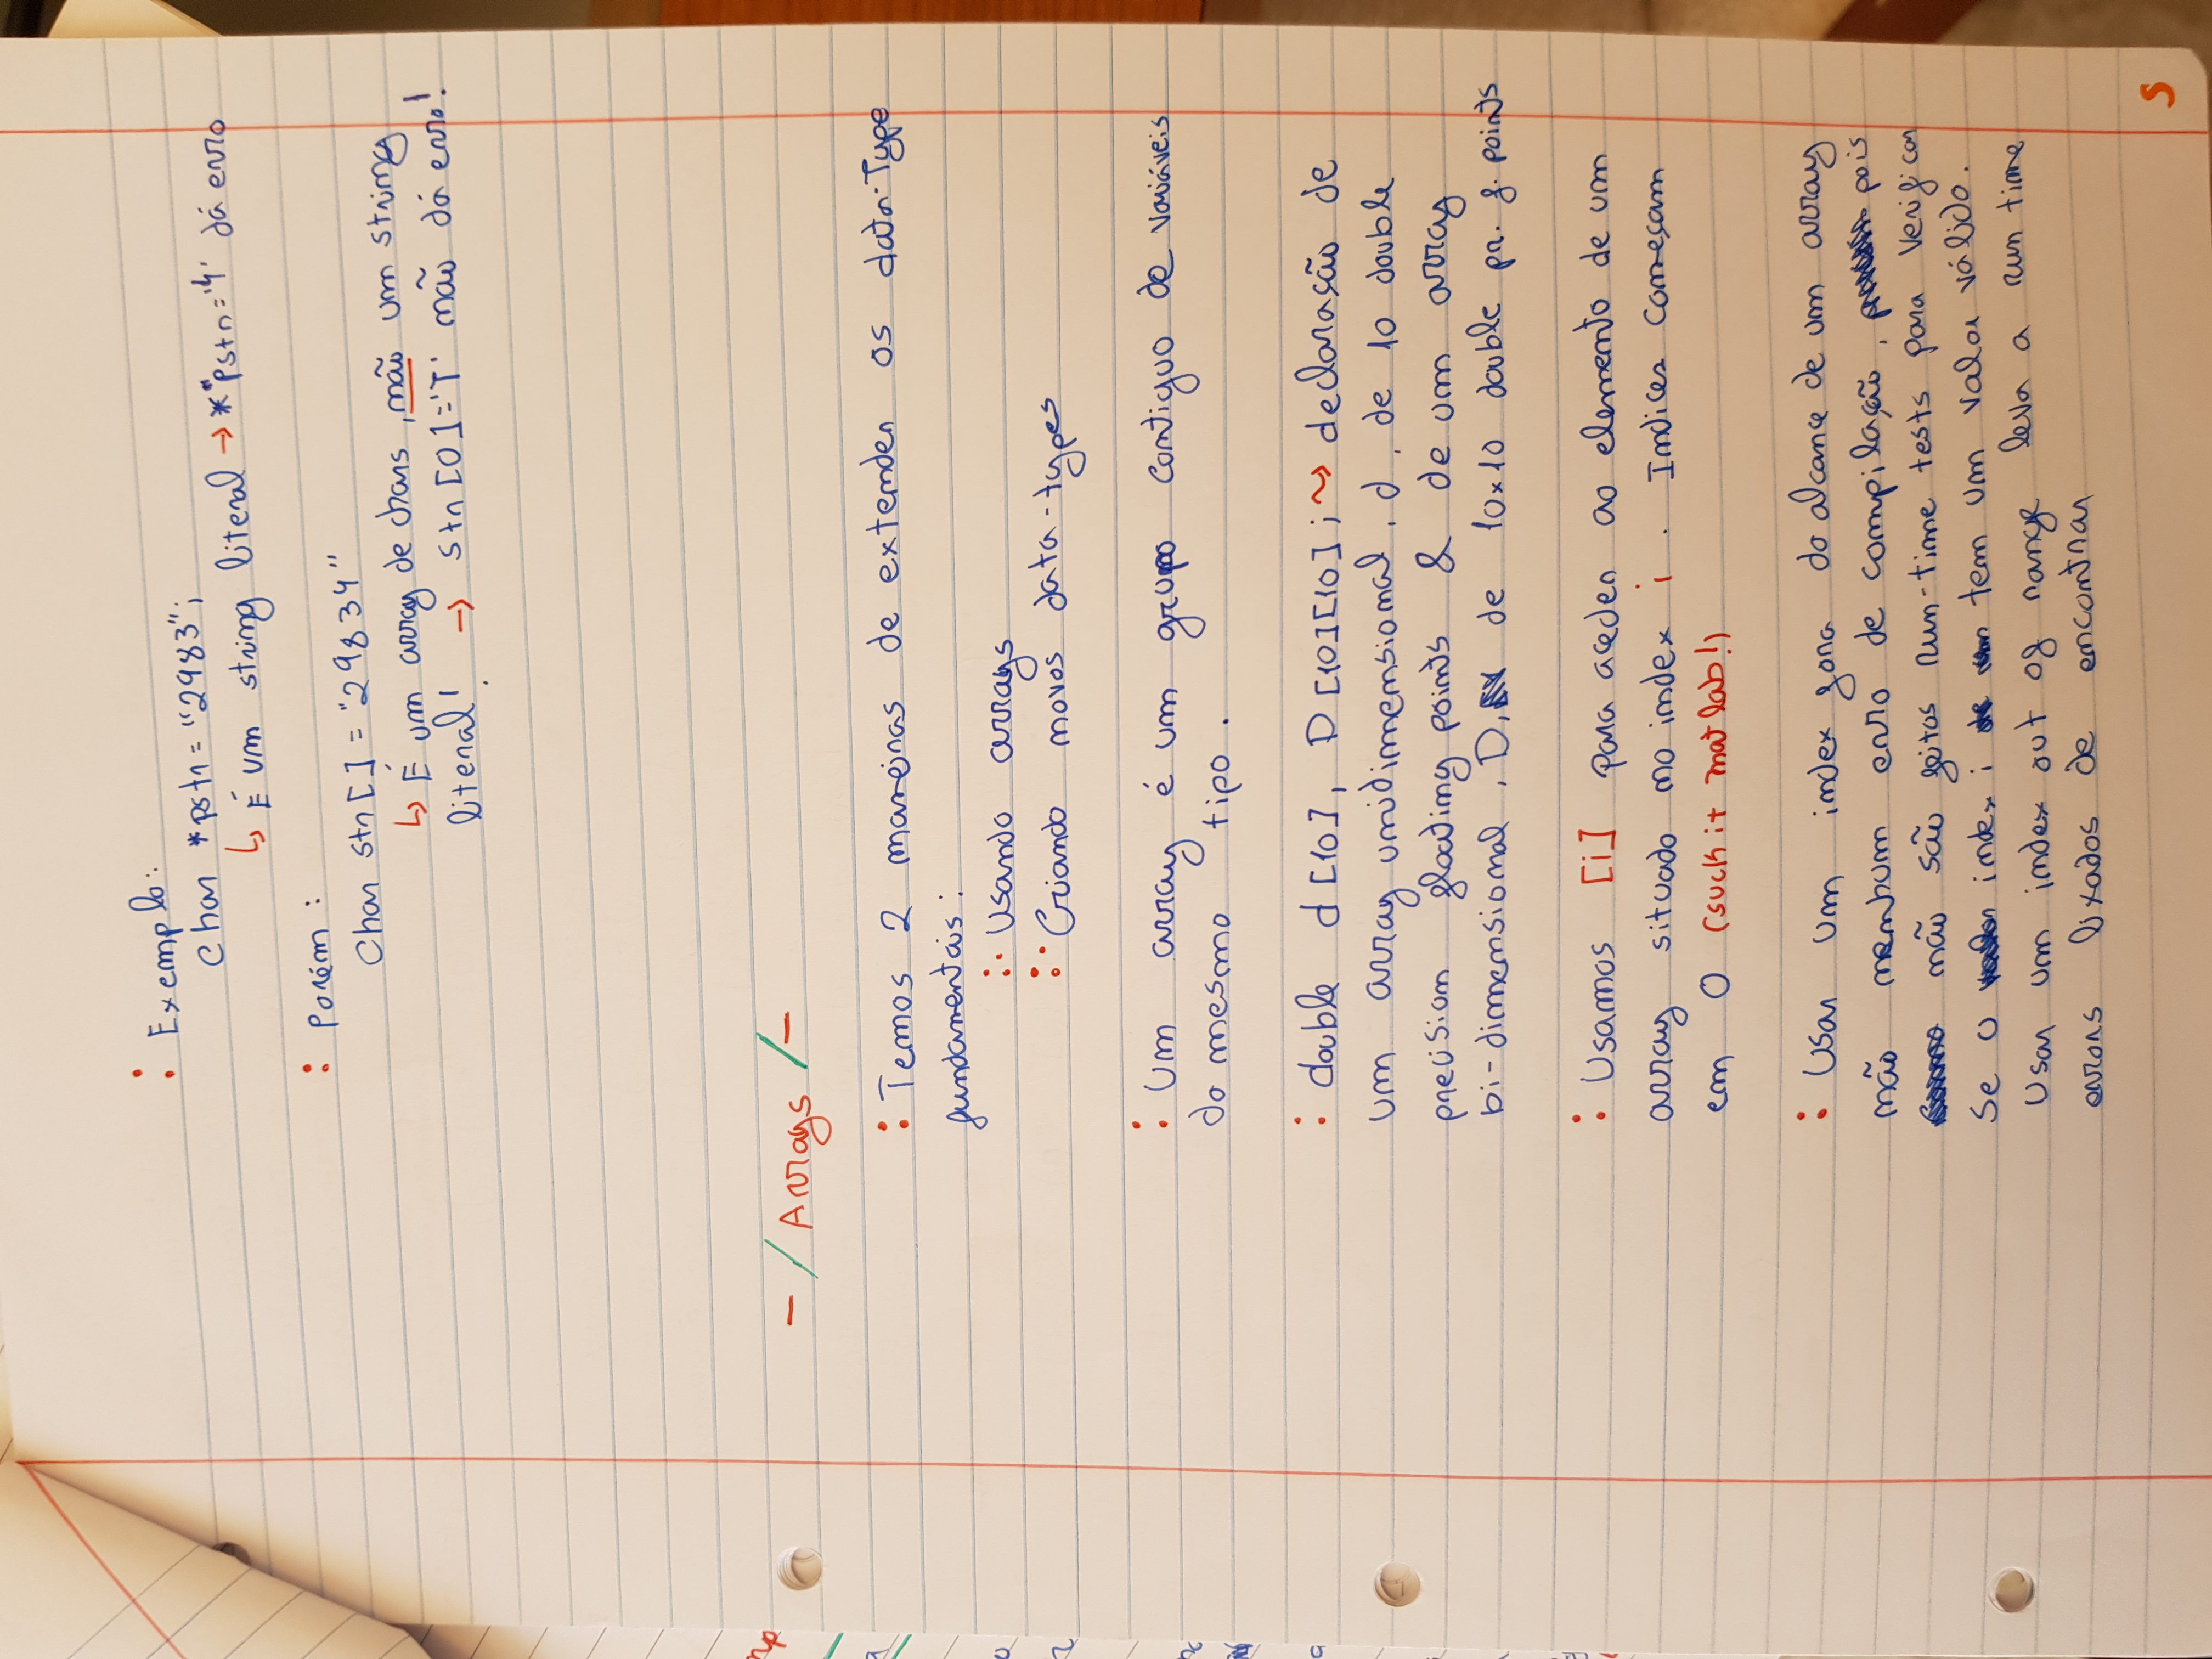 : Exemplo:
Char *pstr = "2983";
↳ É um string literal → *pstr='4' dá erro
: Porém :
Char str[] = "29834"
↳ É um array de chars, não um string
literal! → str[0]='T' não dá erro!
- / Arrays / -
: Temos 2 maneiras de extender os data-Type
fundamentais:
:· Usando arrays
:· Criando novos data-types
: Um array é um grupo contiguo de variáveis
do mesmo tipo.
: double d[10], D[10][10]; ⤳ declarasão de
um array unidimensional, d, de 10 double
precision floating points & de um array
bi-dimensional, D, de 10x10 double pr. f. points
: Usamos [i] para aceder ao elemento de um
array situado no index i. Indices comesam
em 0 (suck it matlab!)
: Usar um index fora do alcance de um array
não nenhum erro de compilação, pois
não são feitos run-time tests para verificar
se o index i tem um valor válido.
Usar um index out of range leva a run time
errors lixados de encontrar
5